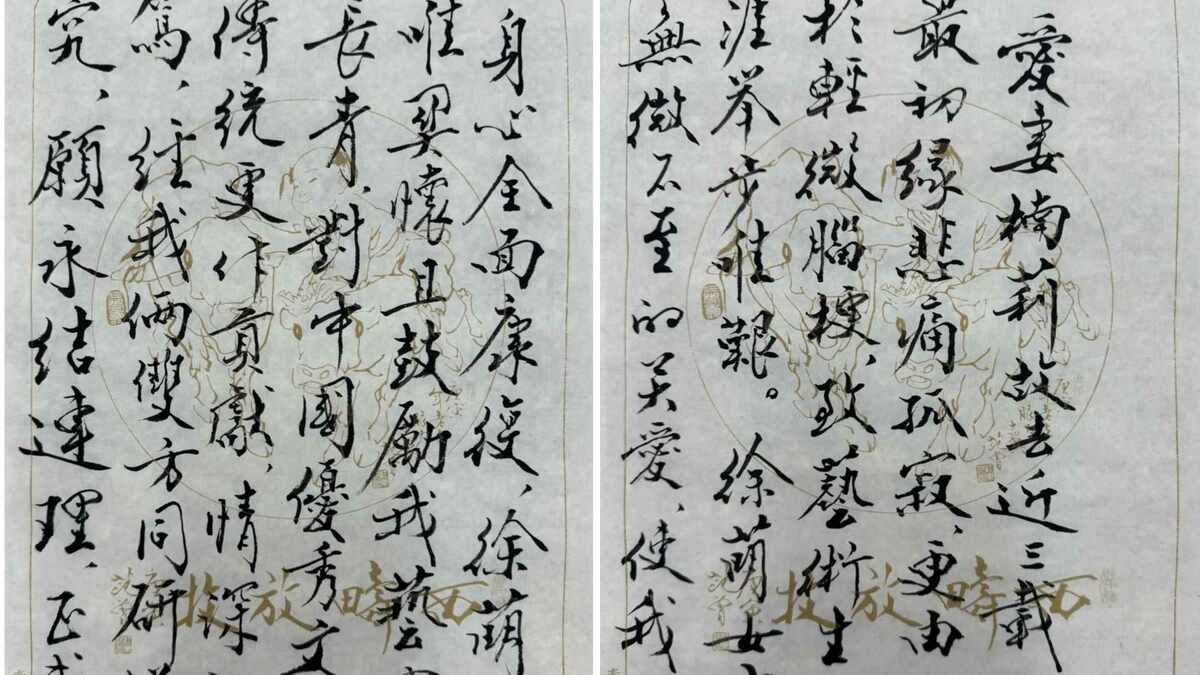 愛妻楠莉故去近三載
最初緣悲痛孤寂、更由
於輕微腦梗、致藝術生
涯举步唯艱。徐萌女
無微不至的关愛、使我
西疇放牧
身心全面康復、徐萌
唯懷且鼓勵我藝
長青、對中國優秀文
傳統更作貢獻、情深
篤、經我倆雙方同研
究、願永结連理、正
西疇放牧